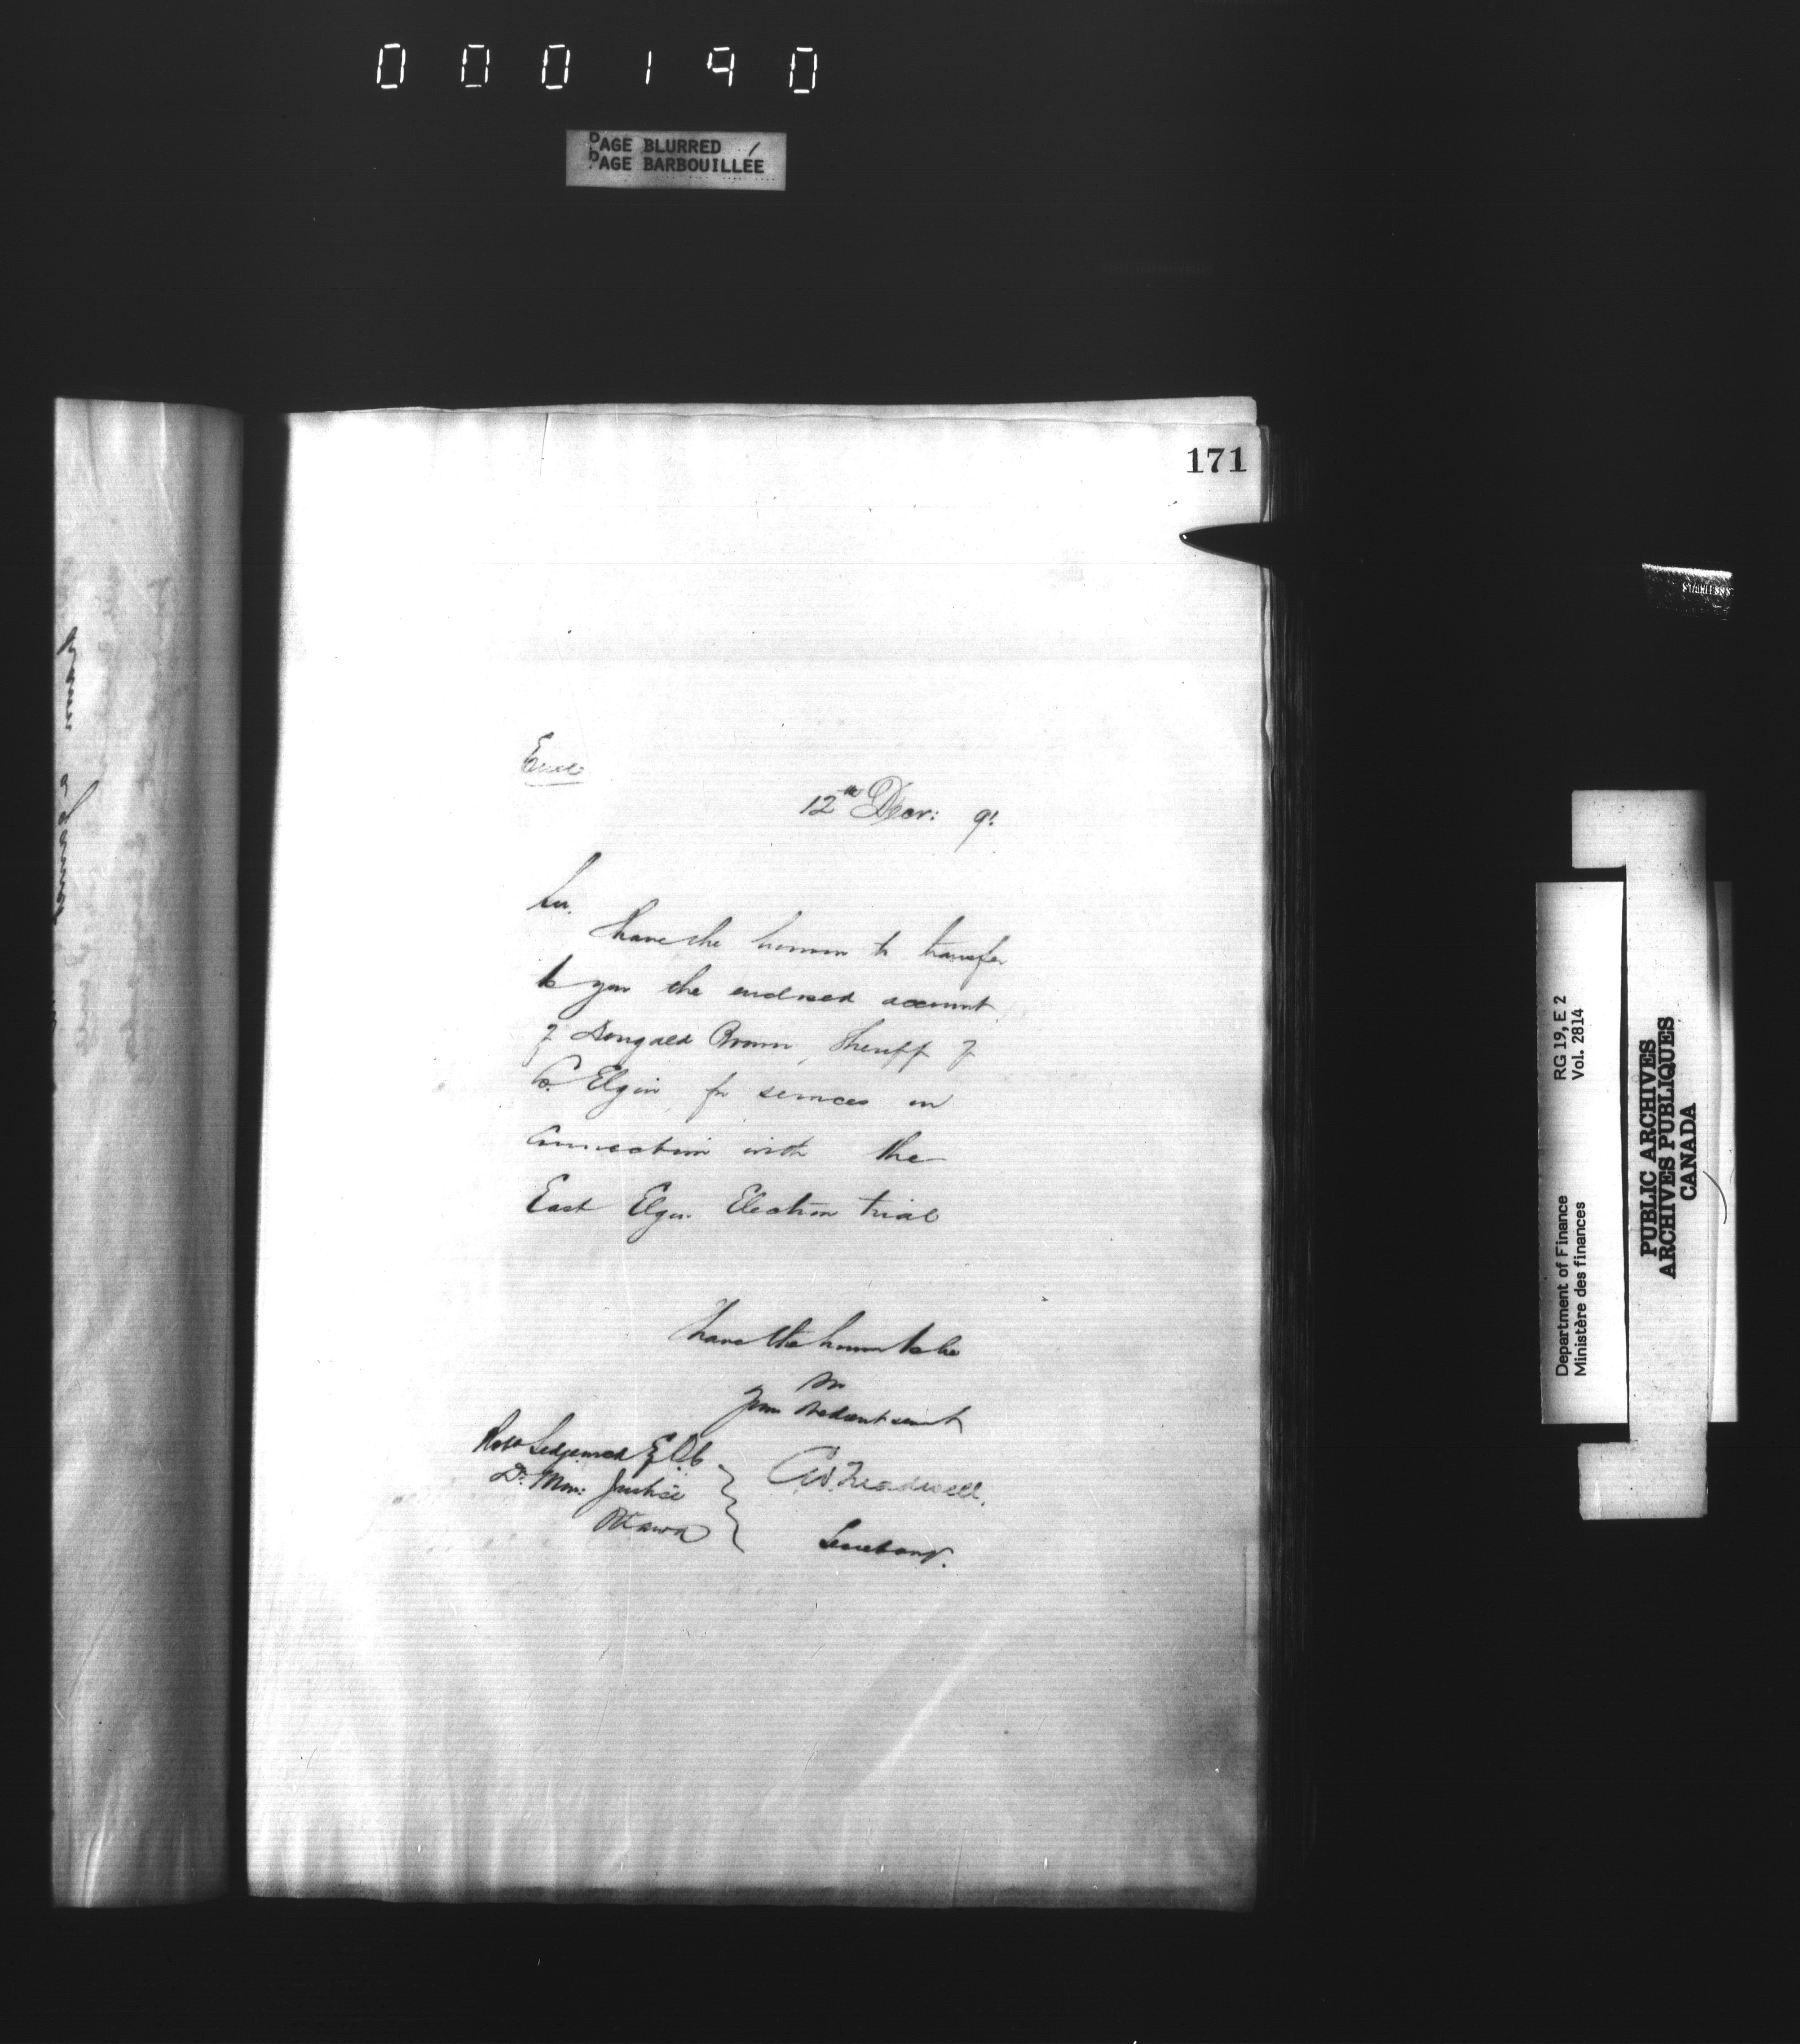 000190
PAGE BLURRED
PAGE BARBOUILLÉE
171
Encl
12th Decr: 91
Sir,
I have the honour to transfer
to you the enclosed account
of Dougald Brown, Sheriff of
Co. Elgin for services in
connection with the
East Elgin Election trial
I have the honour to be
Sir
Your obedient servant
Robt Sedgewick Esq Q.C.
D. Min: Justice
Ottawa
C.W. Treadwell.
Secretary.
RG 19, E 2
Vol. 2814
Department of Finance
Ministère des finances
PUBLIC ARCHIVES
ARCHIVES PUBLIQUES
CANADA